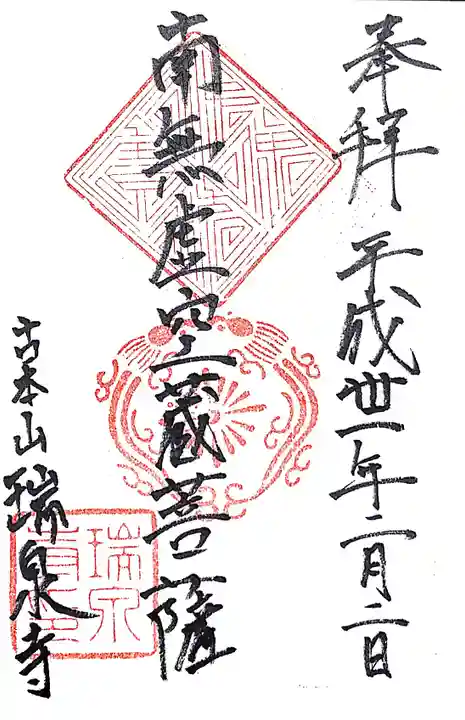 奉拝 平成丗一年二月二日
南無虚空蔵菩薩
古本山瑞泉寺
瑞泉